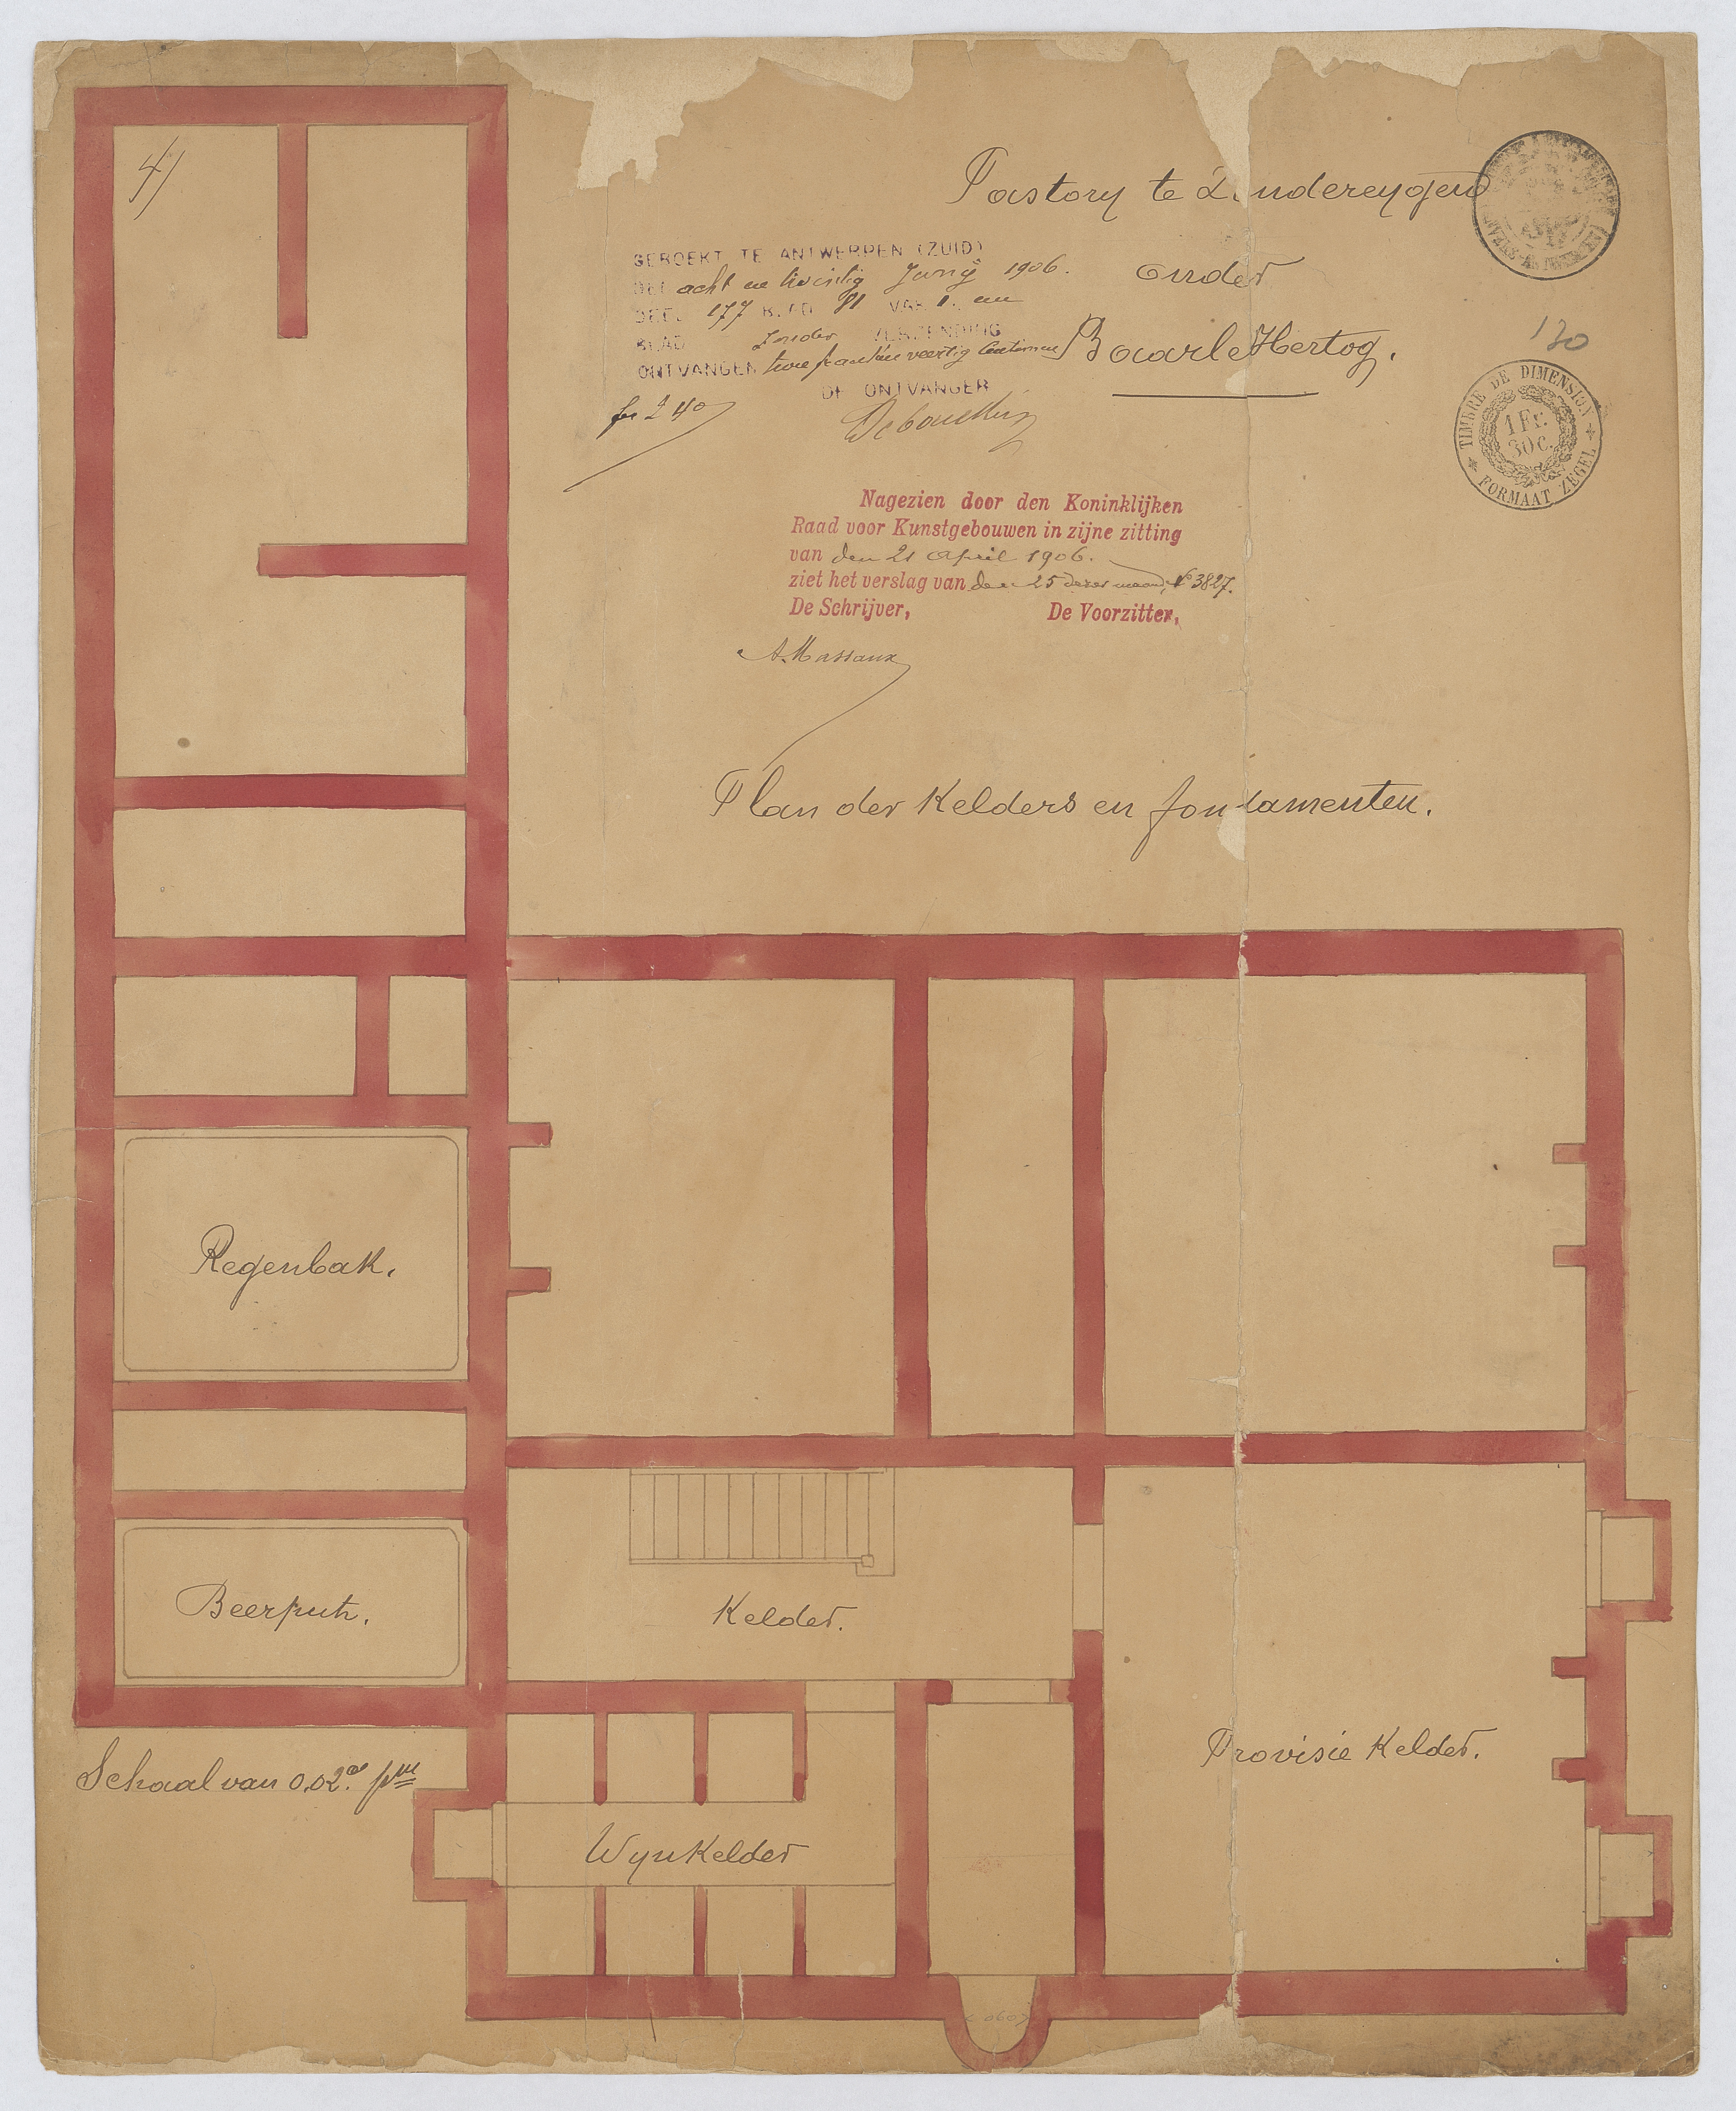 4)
Pastory te Zondereygen
onder
Baarle Hertog.
GEBOEKT TE ANTWERPEN (ZUID)
DEN acht en twintig Juny 1906.
DEEL 177 BLAD 81 VAK 1. een
BLAD Zonder VERZENDING
ONTVANGEN twee franken veertig centimen
DE ONTVANGER
fr 2 40
130
TIMBRE DE DIMENSION
1 Fr.
30 c.
FORMAAT ZEGEL
Nagezien door den Koninklijken
Raad voor Kunstgebouwen in zijne zitting
van den 21 April 1906.
ziet het verslag van den 25 dezer maand, No 3827.
De Schrijver, De Voorzitter,
A. Massaux
Plan der Kelders en fondamenten.
Regenbak.
Beerput.
Kelder.
Provisie Kelder.
Schaal van 0.02.c pm
Wynkelder
0.60